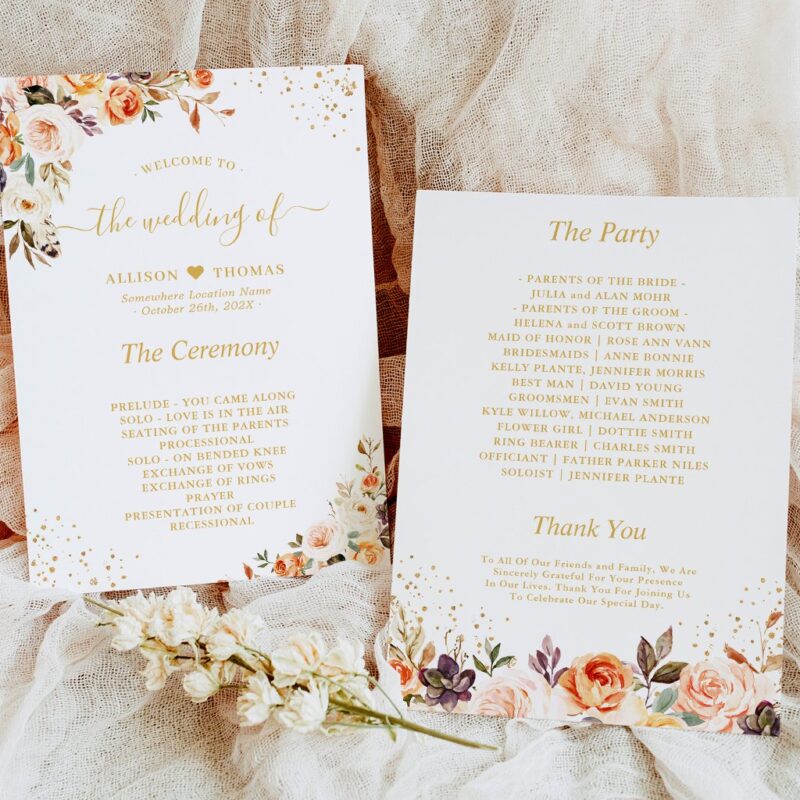 · WELCOME TO ·
the wedding of
ALLISON ♥ THOMAS
Somewhere Location Name
· October 26th, 202X ·
The Ceremony
PRELUDE - YOU CAME ALONG
SOLO - LOVE IS IN THE AIR
SEATING OF THE PARENTS
PROCESSIONAL
SOLO - ON BENDED KNEE
EXCHANGE OF VOWS
EXCHANGE OF RINGS
PRAYER
PRESENTATION OF COUPLE
RECESSIONAL
The Party
- PARENTS OF THE BRIDE -
JULIA and ALAN MOHR
- PARENTS OF THE GROOM -
HELENA and SCOTT BROWN
MAID OF HONOR | ROSE ANN VANN
BRIDESMAIDS | ANNE BONNIE
KELLY PLANTE, JENNIFER MORRIS
BEST MAN | DAVID YOUNG
GROOMSMEN | EVAN SMITH
KYLE WILLOW, MICHAEL ANDERSON
FLOWER GIRL | DOTTIE SMITH
RING BEARER | CHARLES SMITH
OFFICIANT | FATHER PARKER NILES
SOLOIST | JENNIFER PLANTE
Thank You
To All Of Our Friends and Family, We Are
Sincerely Grateful For Your Presence
In Our Lives. Thank You For Joining Us
To Celebrate Our Special Day.